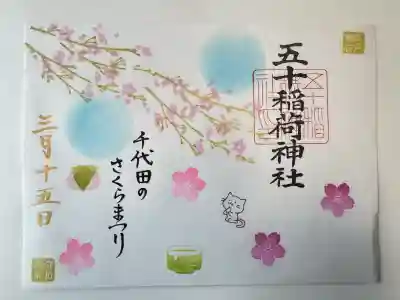 五十稲荷神社
千代田の
さくらまつり
三月十五日